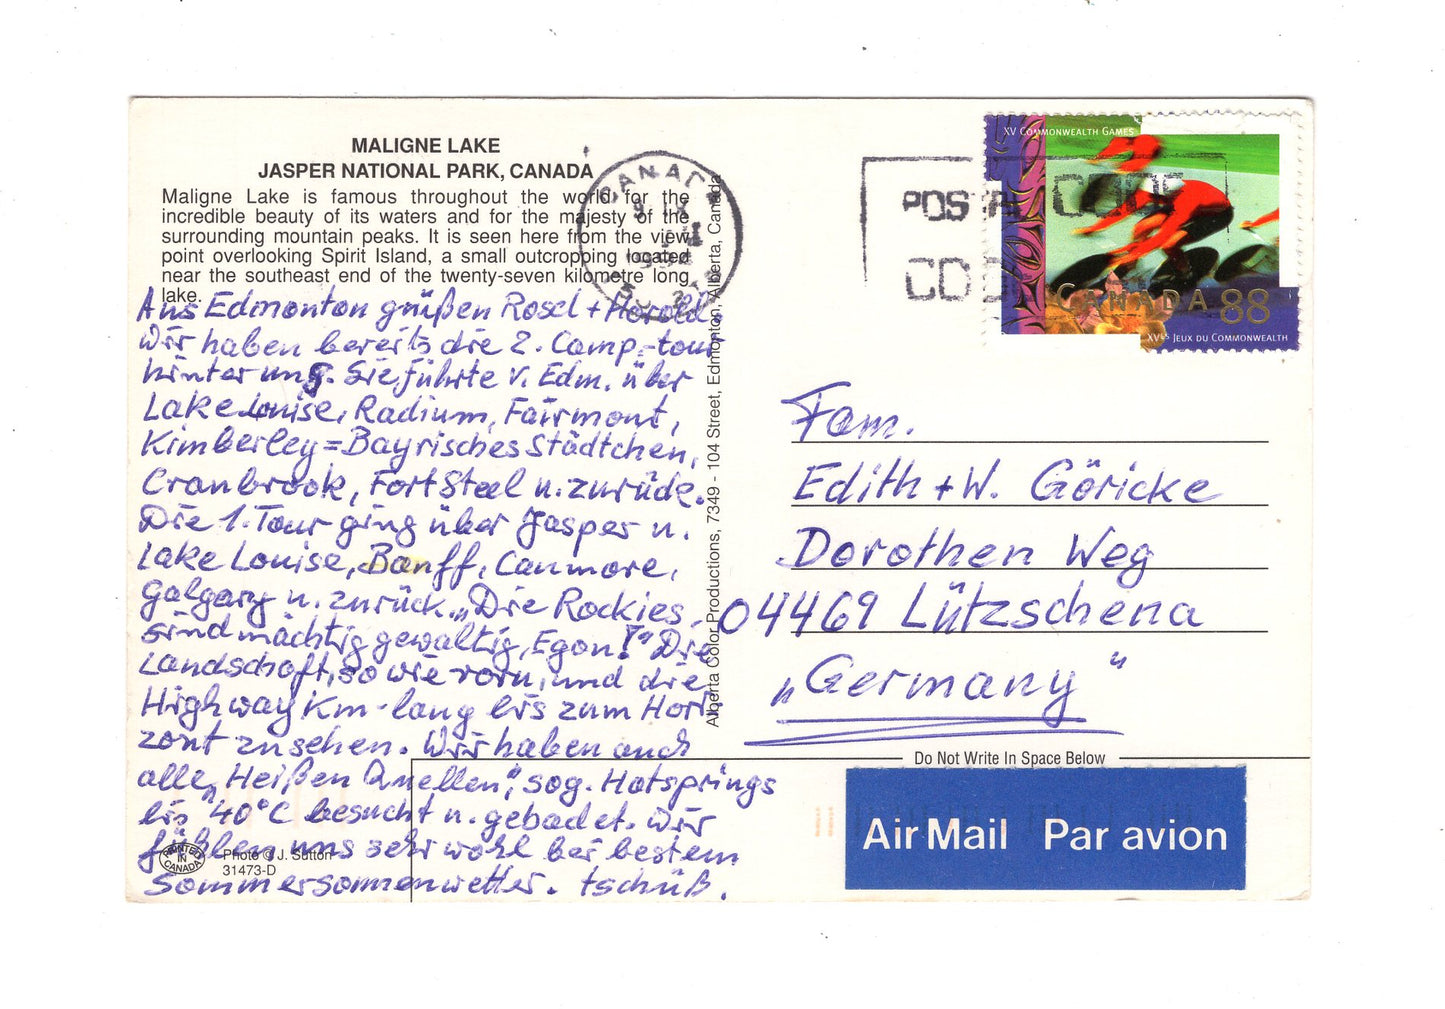 MALIGNE LAKE
JASPER NATIONAL PARK, CANADA
Maligne Lake is famous throughout the world for the
incredible beauty of its waters and for the majesty of the
surrounding mountain peaks. It is seen here from the view
point overlooking Spirit Island, a small outcropping located
near the southeast end of the twenty-seven kilometre long
lake.
Aus Edmonton grüßen Rosel + Harold.
Wir haben bereits die 2. Camp.-tour
hinter uns. Sie führte v. Edm. über
Lake Louise, Radium, Fairmont,
Kimberley = Bayrisches Städtchen,
Cranbrook, Fort Steel u. zurück.
Die 1. Tour ging über Jasper u.
Lake Louise, Banff, Canmore,
Galgary u. zurück. „Die Rockies
sind mächtig gewaltig, Egon!" Die
Landschaft, so wie vorn, und die
Highway km-lang bis zum Hori-
zont zu sehen. Wir haben auch
alle „Heißen Quellen", sog. Hotsprings
bis 40°C besucht u. gebadet. Wir
fühlen uns sehr wohl bei bestem
Sommersonnenwetter. tschüß.
PRINTED IN CANADA
Photo © J. Sutton
31473-D
Alberta Color Productions, 7349 - 104 Street, Edmonton, Alberta, Canada
CANADA
POSTAL CODE
CODE
XV COMMONWEALTH GAMES
CANADA 88
XVes JEUX DU COMMONWEALTH
Fam.
Edith + W. Göricke
Dorothen Weg
04469 Lützschena
„Germany"
Do Not Write In Space Below
Air Mail Par avion